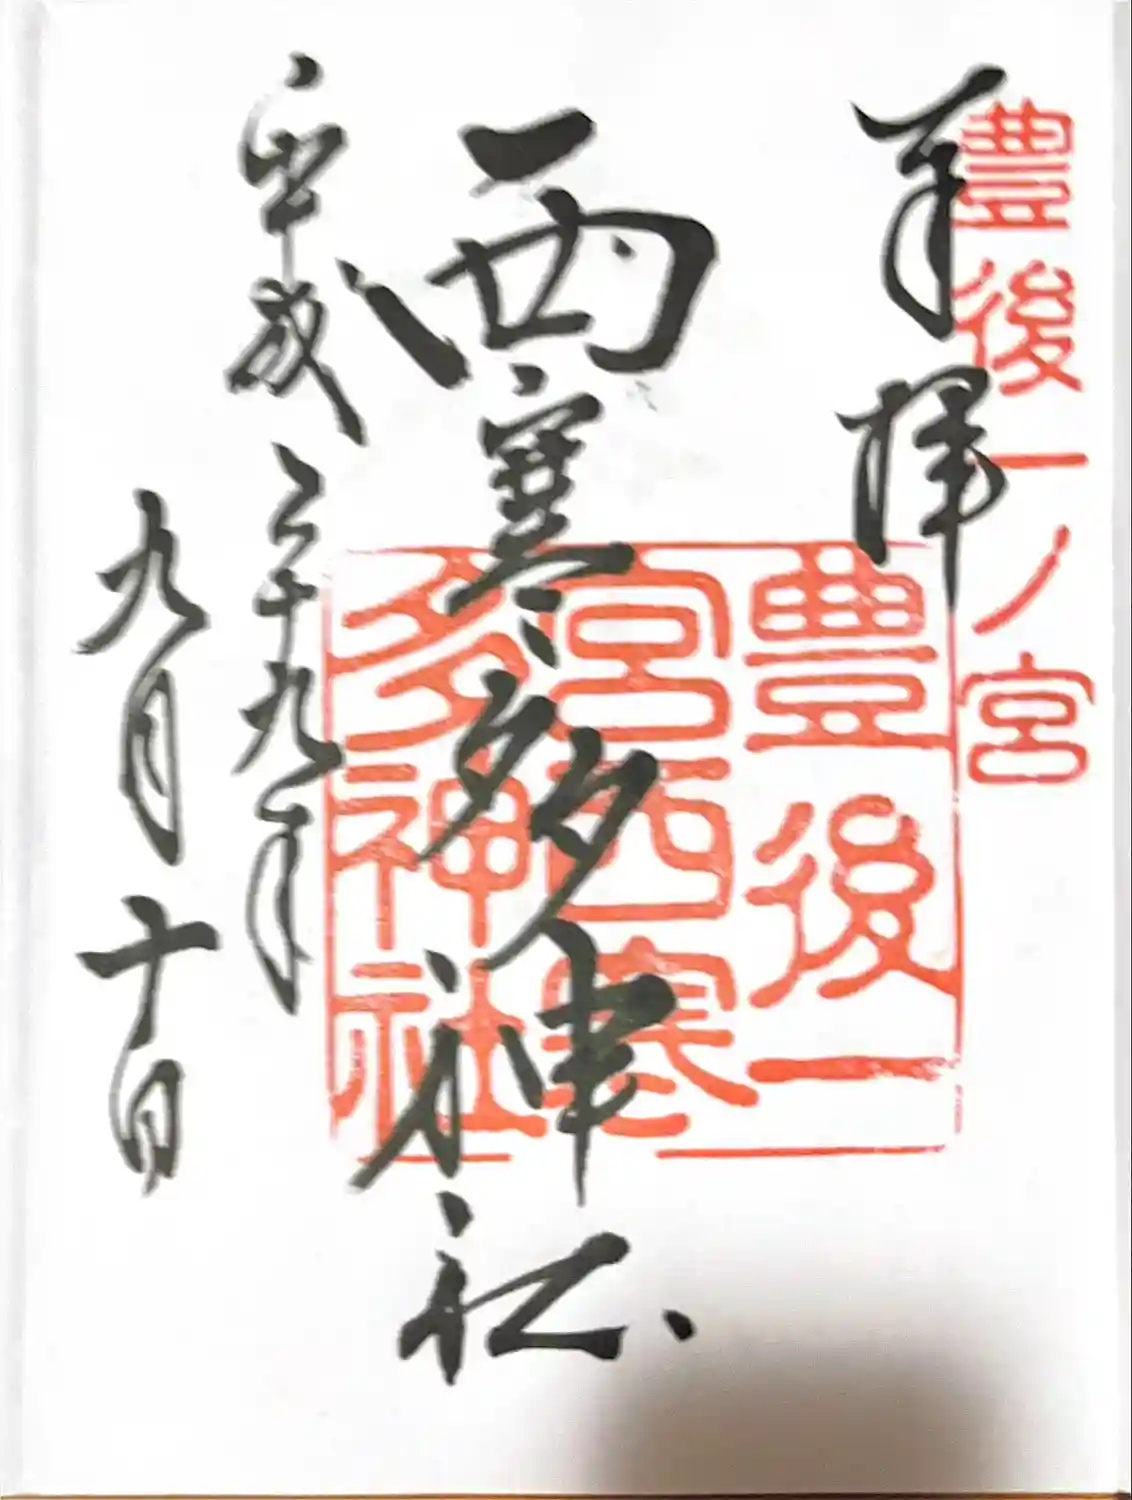 豊後一ノ宮
奉拝
豊後一
宮西寒
多神社
西寒多神社
平成二十九年
九月十日